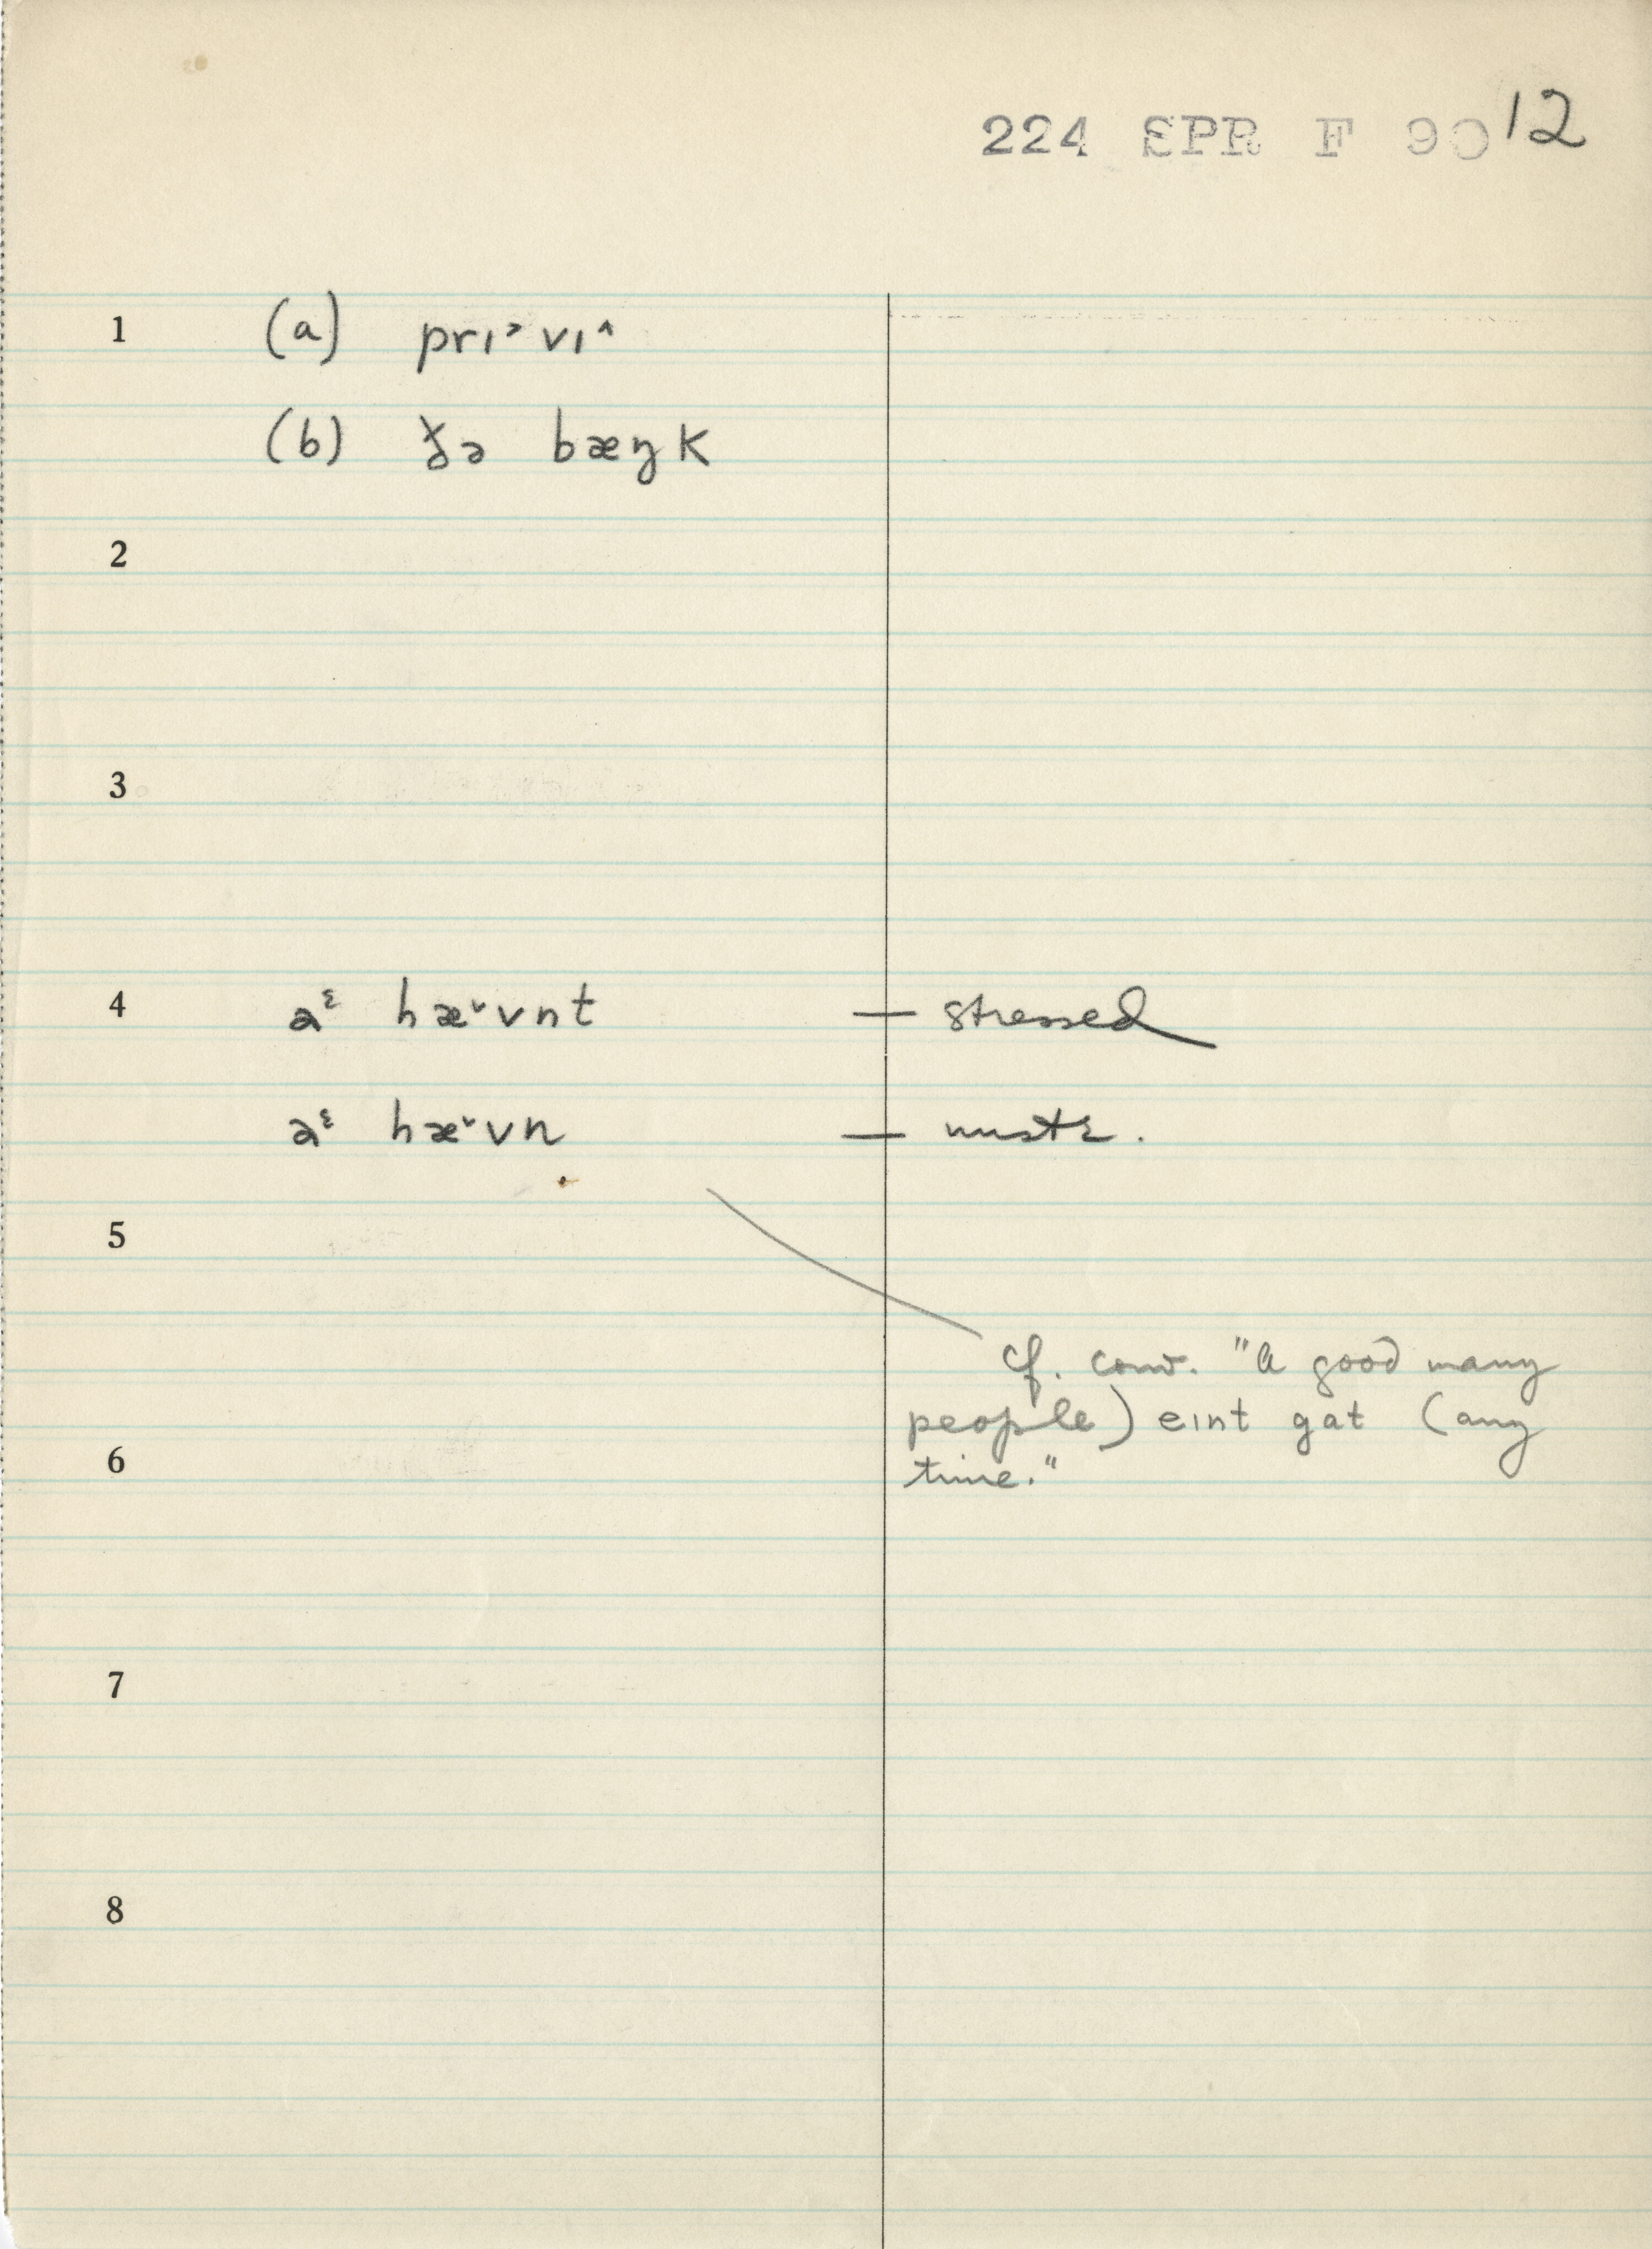 224 EPR F 90 12
1 (a) prɪ˃ vɪ˄
(b) ðə bæŋk
2
3
4 aᵋ hæ˅vnt — stressed
aᵋ hæ˅vn — unstr.
5
cf. conv. "A good many
people) eɪnt gat (any
6 time."
7
8